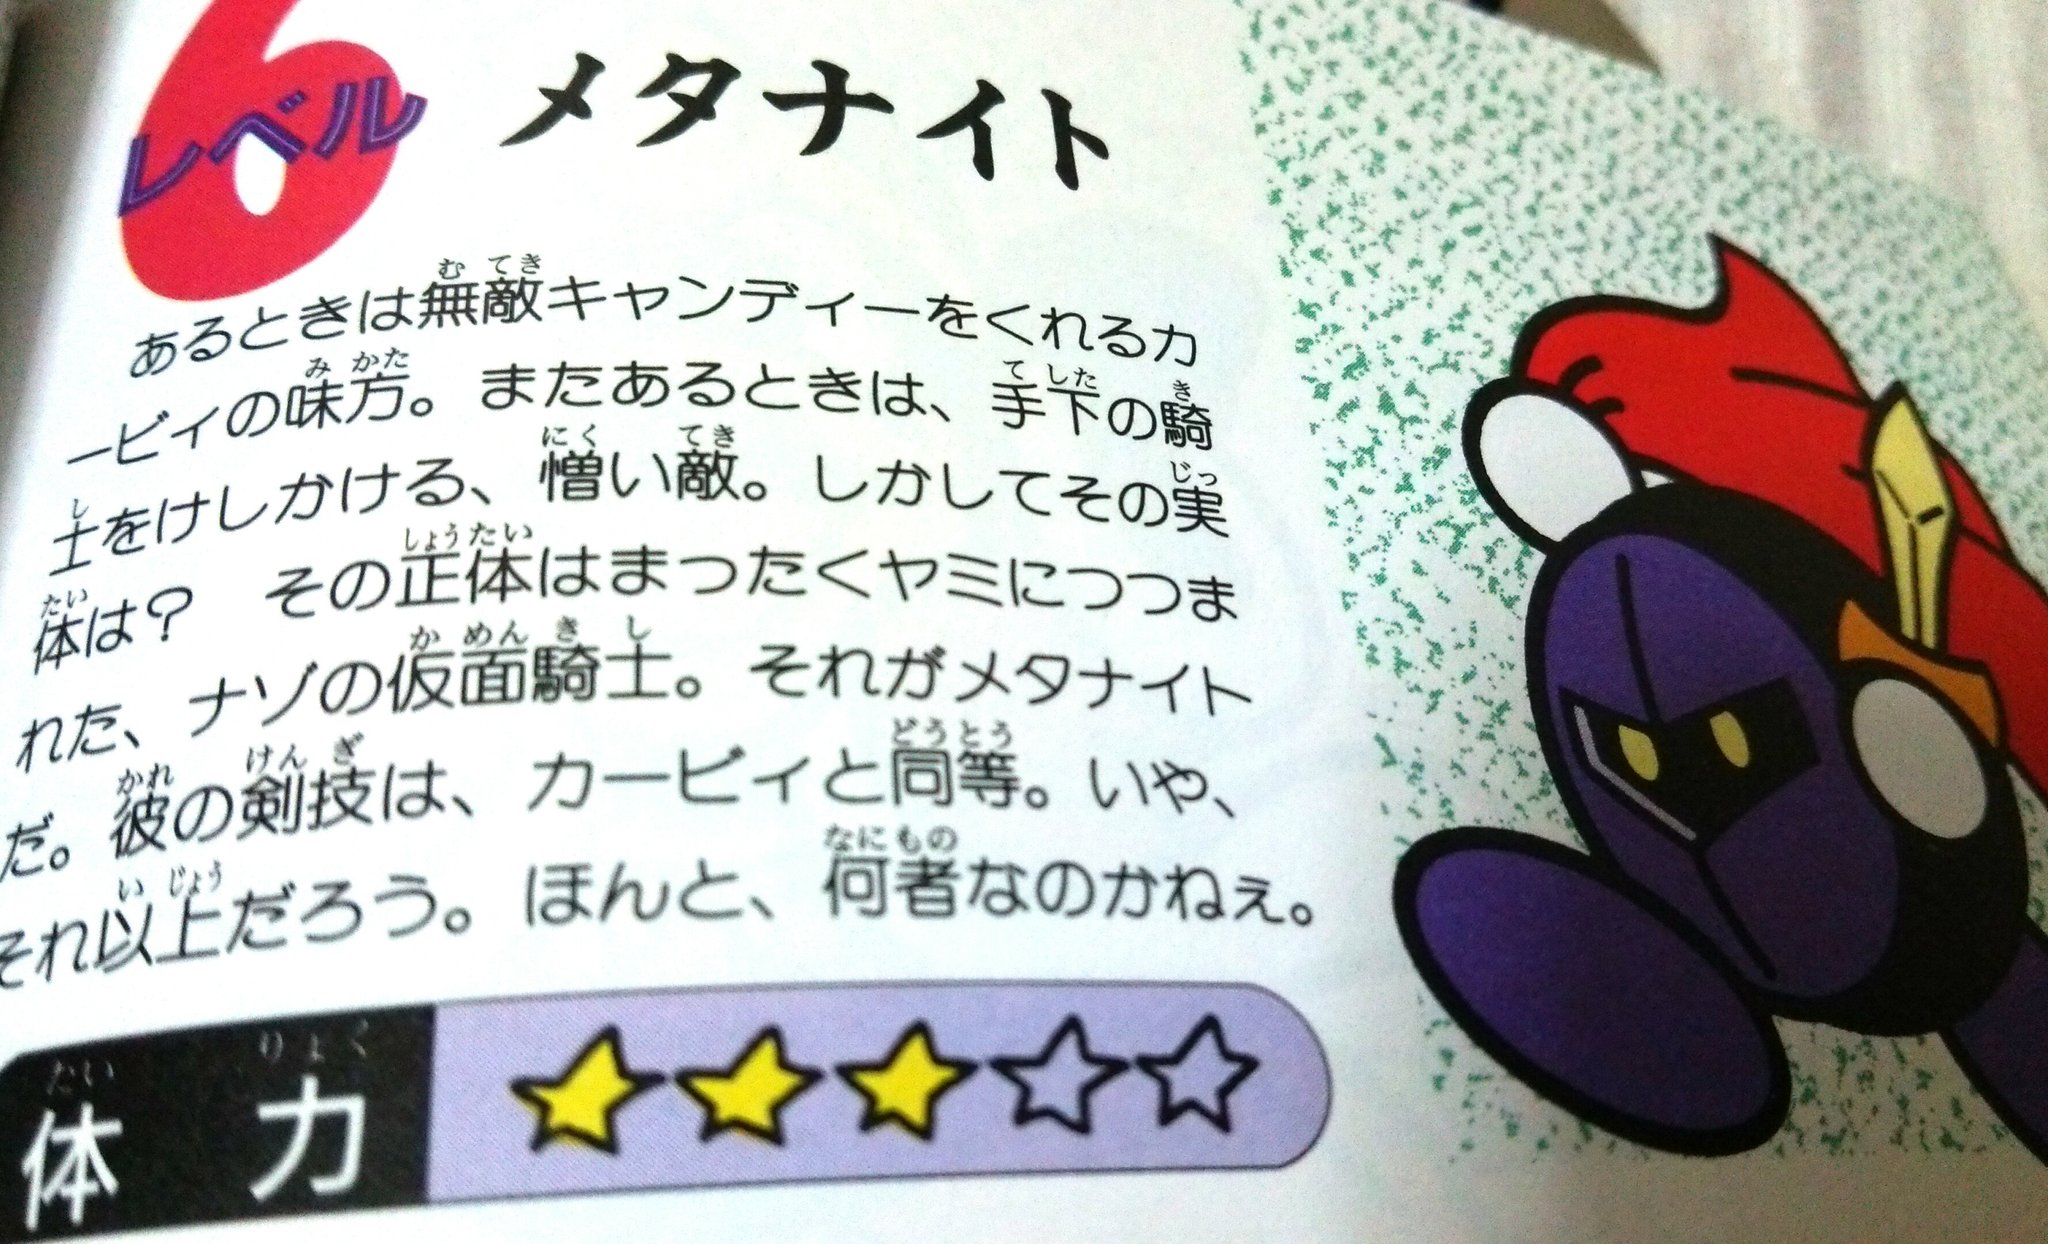 6
レベル
メタナイト
あるときは無敵キャンディーをくれるカ
ービィの味方。またあるときは、手下の騎
士をけしかける、憎い敵。しかしてその実
体は? その正体はまったくヤミにつつま
れた、ナゾの仮面騎士。それがメタナイト
だ。彼の剣技は、カービィと同等。いや、
それ以上だろう。ほんと、何者なのかねぇ。
体力